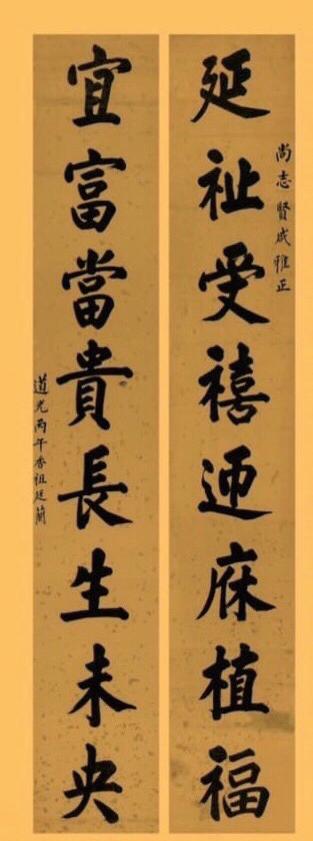 尚志賢戚雅正
延祉受禧迎庥植福
宜富當貴長生未央
道光丙午香祖廷蘭